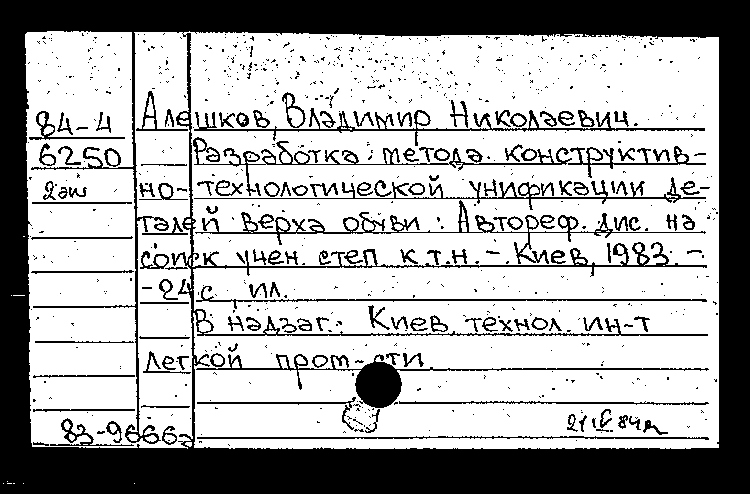 84-4 Алешков, Владимир Николаевич.
6250 Разработка метода конструктив-
2 экз но-технологической унификации де-
талей верха обуви : Автореф. дис. на
соиск. учен. степ. к.т.н. - Киев, 1983. -
- 24 с., ил.
В надзаг.: Киев. технол. ин-т
легкой пром-сти.
83-9666а